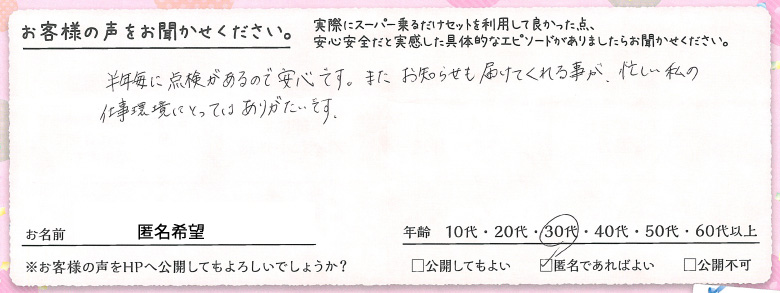 お客様の声をお聞かせください。
実際にスーパー乗るだけセットを利用して良かった点、
安心安全だと実感した具体的なエピソードがありましたらお聞かせください。
半年毎に点検があるので安心です。また お知らせも届けてくれる事が、忙しい私の
仕事環境にとってはありがたいです。
お名前 匿名希望
年齢 10代・20代・30代・40代・50代・60代以上
※お客様の声をHPへ公開してもよろしいでしょうか？ □公開してもよい ☑匿名であればよい □公開不可